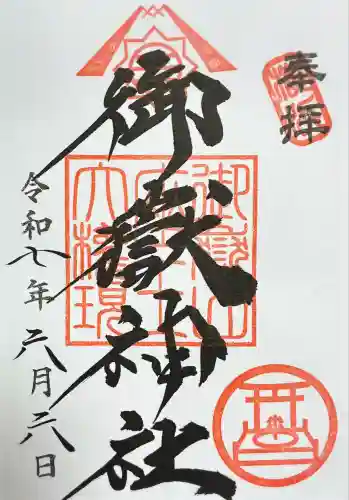 奉拝
御嶽神社
令和七年六月六日
御嶽山
座王
大権現